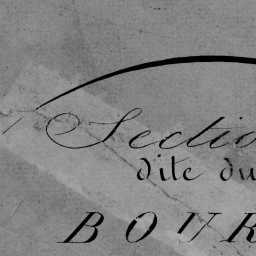 Sectio
dite du
BOUR